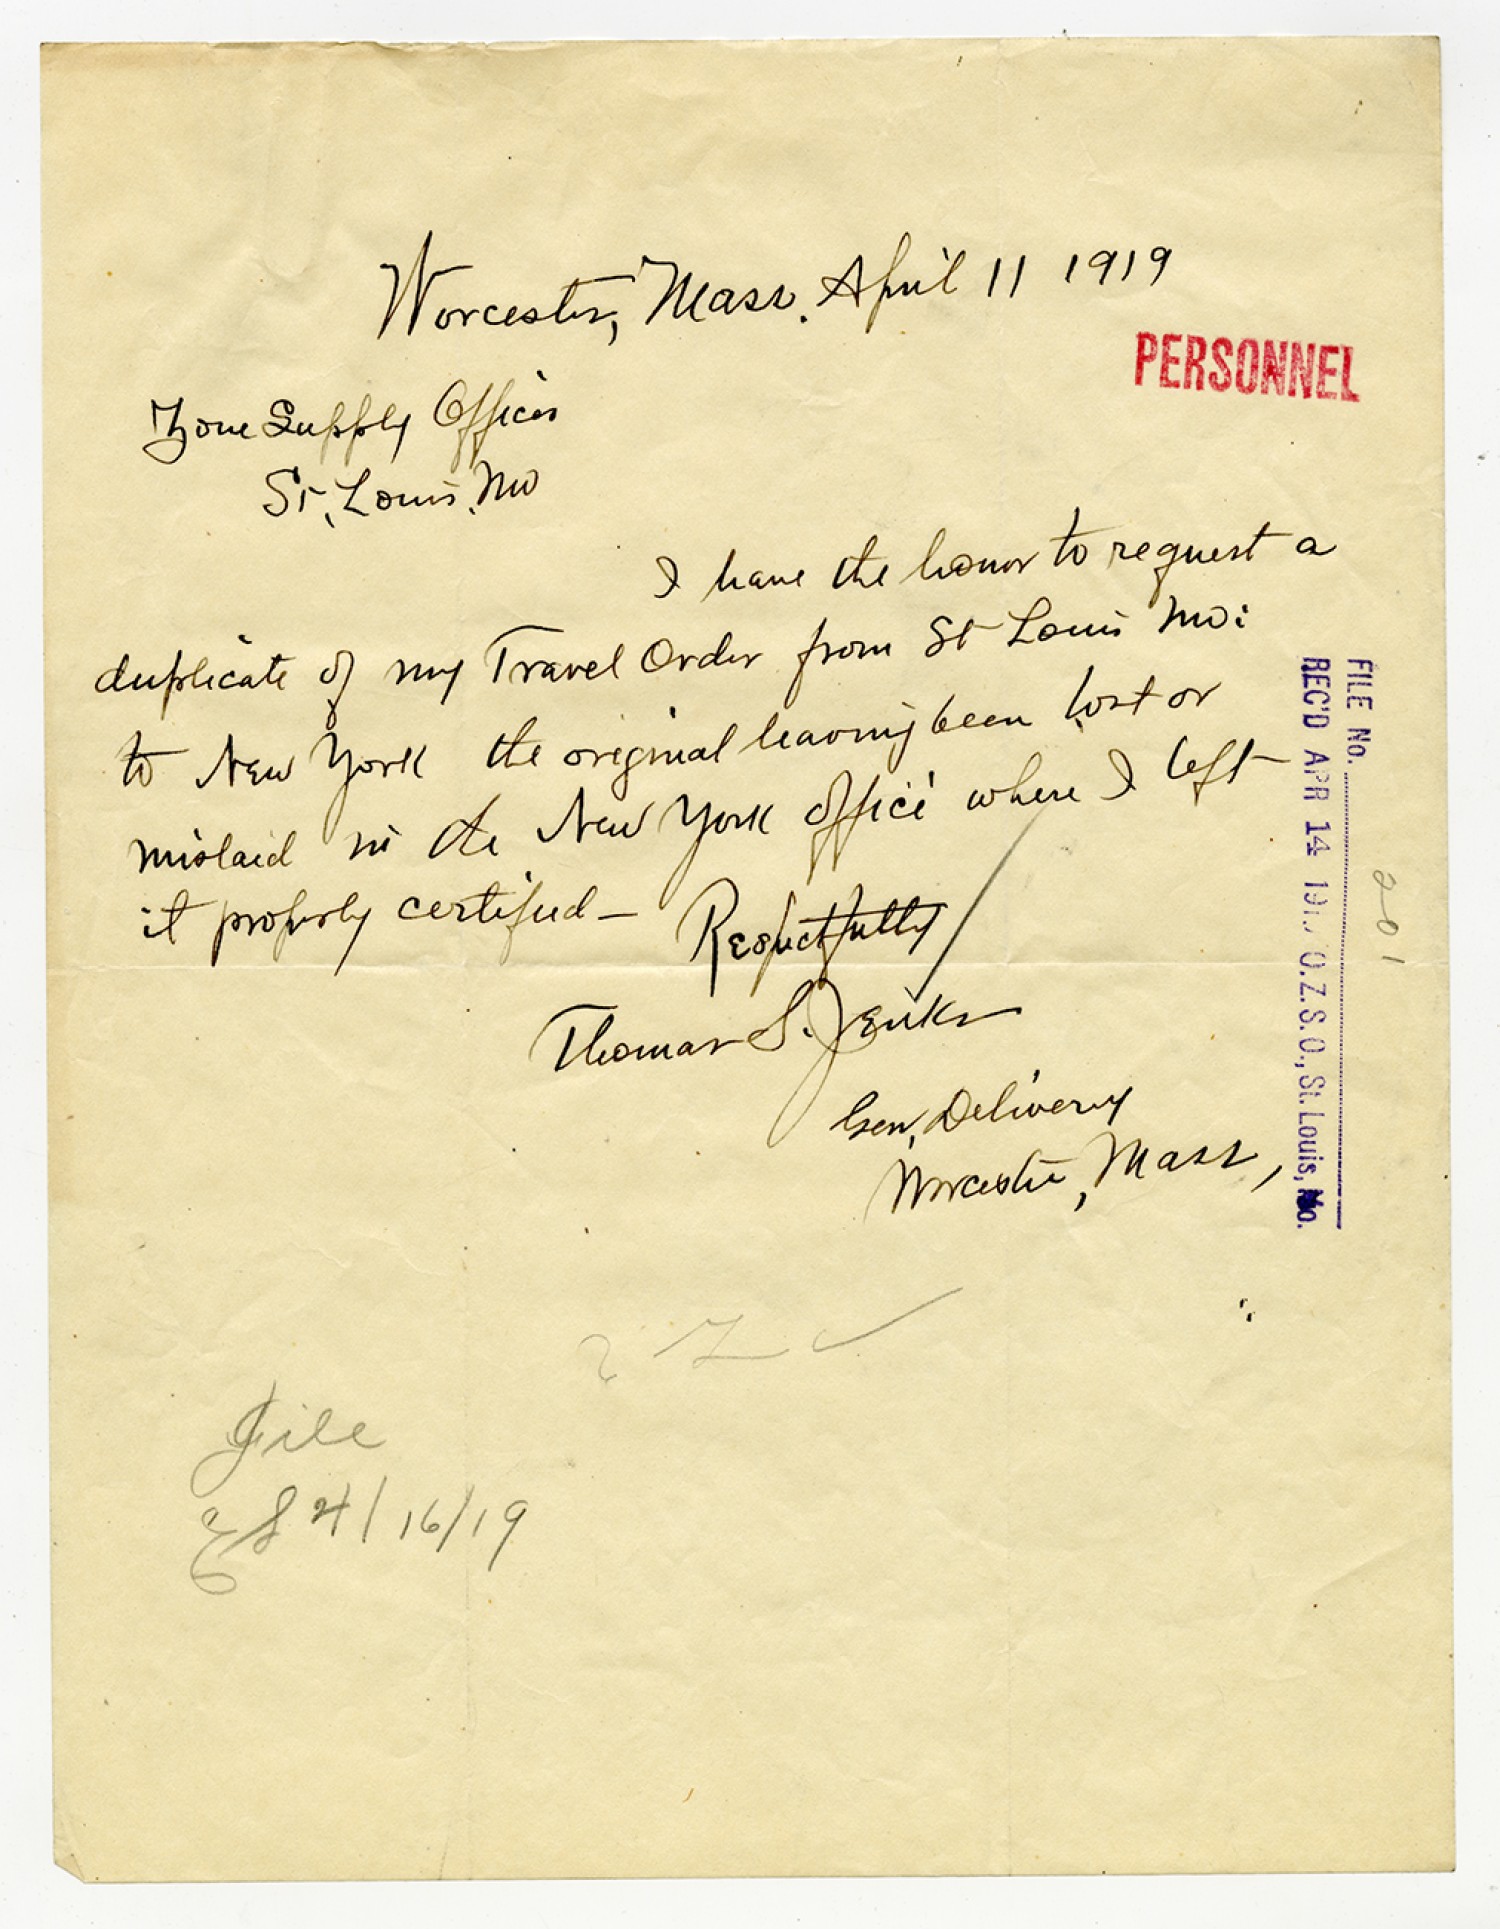 Worcester, Mass. April 11 1919
PERSONNEL
Zone Supply Officer
St. Louis, Mo
I have the honor to request a
duplicate of my Travel Order from St Louis Mo:
to New York the original having been lost or
mislaid in the New York office where I left
it properly certified —
Respectfully
Thomas S. Jenks
Gen. Delivery
Worcester, Mass,
FILE No.
REC'D APR 14 191 O.Z.S.O., St. Louis, Mo.
201
File
4/16/19